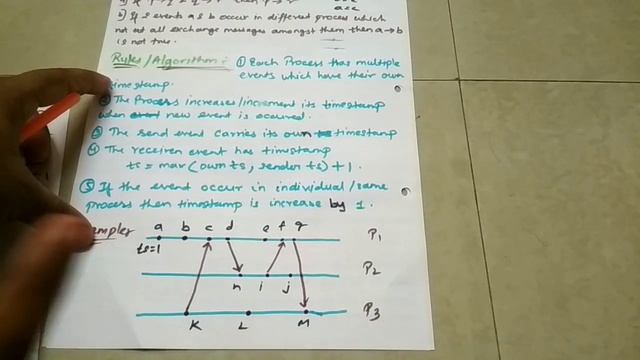 a→c
b) If 2 events a & b occur in different process which
not at all exchange messages amongst them then a→b
is not true.
Rules/Algorithm:- ① Each Process has multiple
events which have their own
timestamp.
The Process increases/increment its timestamp
when new event is occured.
③ The send event carries its own timestamp
④ The receiver event has timestamp
ts = max(own ts, sender ts) + 1.
⑤ If the event occur in individual/same
process then timestamp is increase by 1.
a b c d e f g P1
ts=1
P2
n i j
P3
K L M